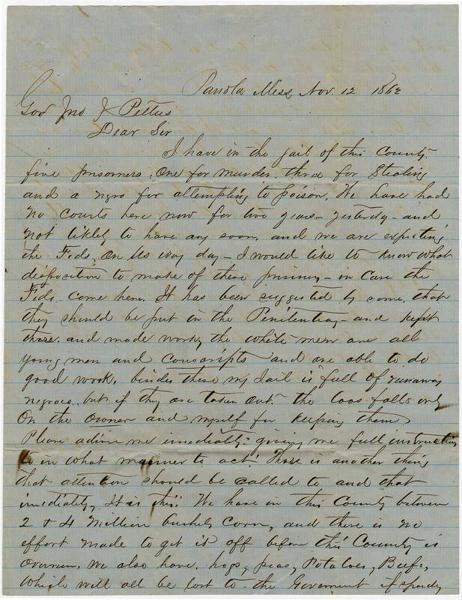 Panola Miss, Nov. 12 1862
Gov Jno J Pettus
Dear Sir
I have in the jail of this County
five prisoners, One for murder, three for Stealing
and a negro for attempting to poison. We have had
no courts here now for two years - yesterday - and
not likely to have any soon, and we are expecting
the Feds. On us evry day - I would like to know what
disposition to make of these prisoners - in case the
Feds. come here. It has been suggested by some, that
they should be put in the Penitentiary - and kept
there and made work, the white men are all
young men and conscripts and are able to do
good work, besides these my Jail is full of runaway
negroes, but if they are taken out the loss falls only
On the owner and myself for keeping them
Please advise me imediatly: giving me full instruction
in what manner to act! There is another thing
that attention should be called to and that
imediatly, It is this: We have in this County between
2 & 4 Million bushels Corn, and there is no
effort made to get it off before this County is
overrun. We also have, hogs, peas, Potatoes, Beefs,
which will all be lost to the Goverment if speedy